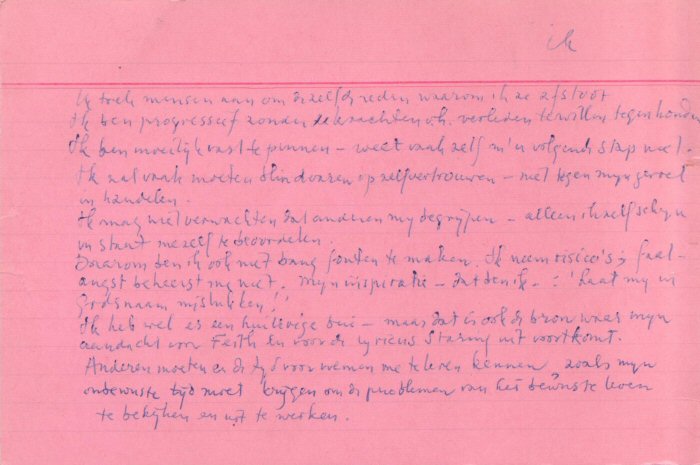 ik
Ik trek mensen aan om dezelfde reden waarom ik ze afstoot
Ik ben progressief zonder de krachten v.h. verleden te willen tegenhouden
Ik ben moeilijk vast te pinnen – weet vaak zelf m'n volgende stap niet.
Ik zal vaak moeten blindvaren op zelfvertrouwen – niet tegen mijn gevoel
in handelen.
Ik mag niet verwachten dat anderen mij begrijpen – alleen ikzelf schijn
in staat mezelf te beoordelen.
Daarom ben ik ook niet bang fouten te maken. Ik neem risico's; faal-
angst beheerst me niet. Mijn inspiratie – dat ben ik – : 'Laat mij in
Godsnaam mislukken!'
Ik heb wel es een huilerige bui – maar dat is ook de bron waar mijn
aandacht voor Feith en voor de lyricus Staring uit voortkomt.
Anderen moeten er de tijd voor nemen me te leren kennen, zoals mijn
onbewuste tijd moet krijgen om de problemen van het bewuste leven
te bekijken en uit te werken.